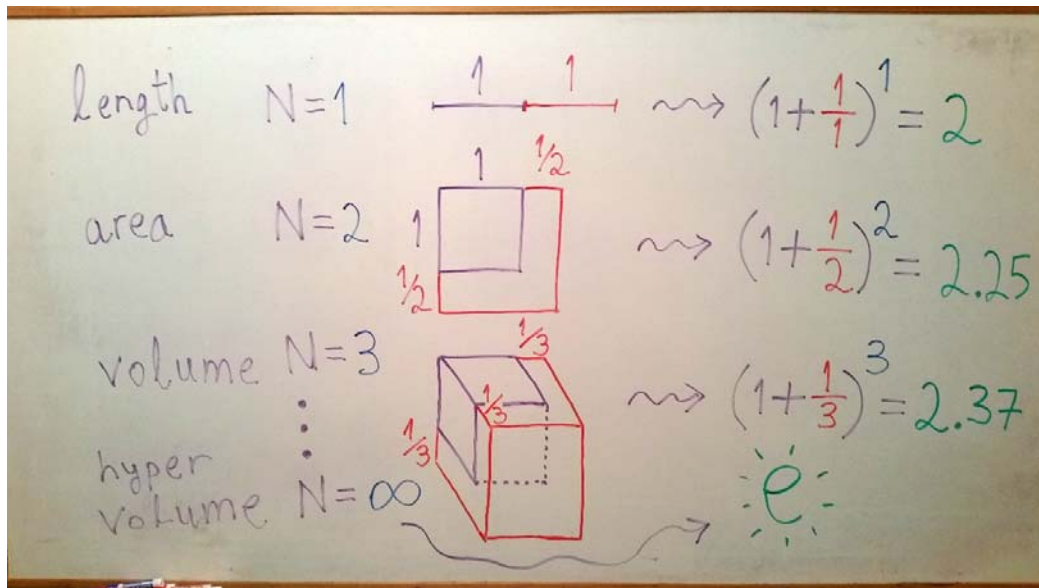 length N=1 1 1 (1+1/1)^1 = 2
area N=2 1 1/2 1 1/2 (1+1/2)^2 = 2.25
volume N=3 1/3 1/3 1/3 (1+1/3)^3 = 2.37
hyper
volume N=∞ e